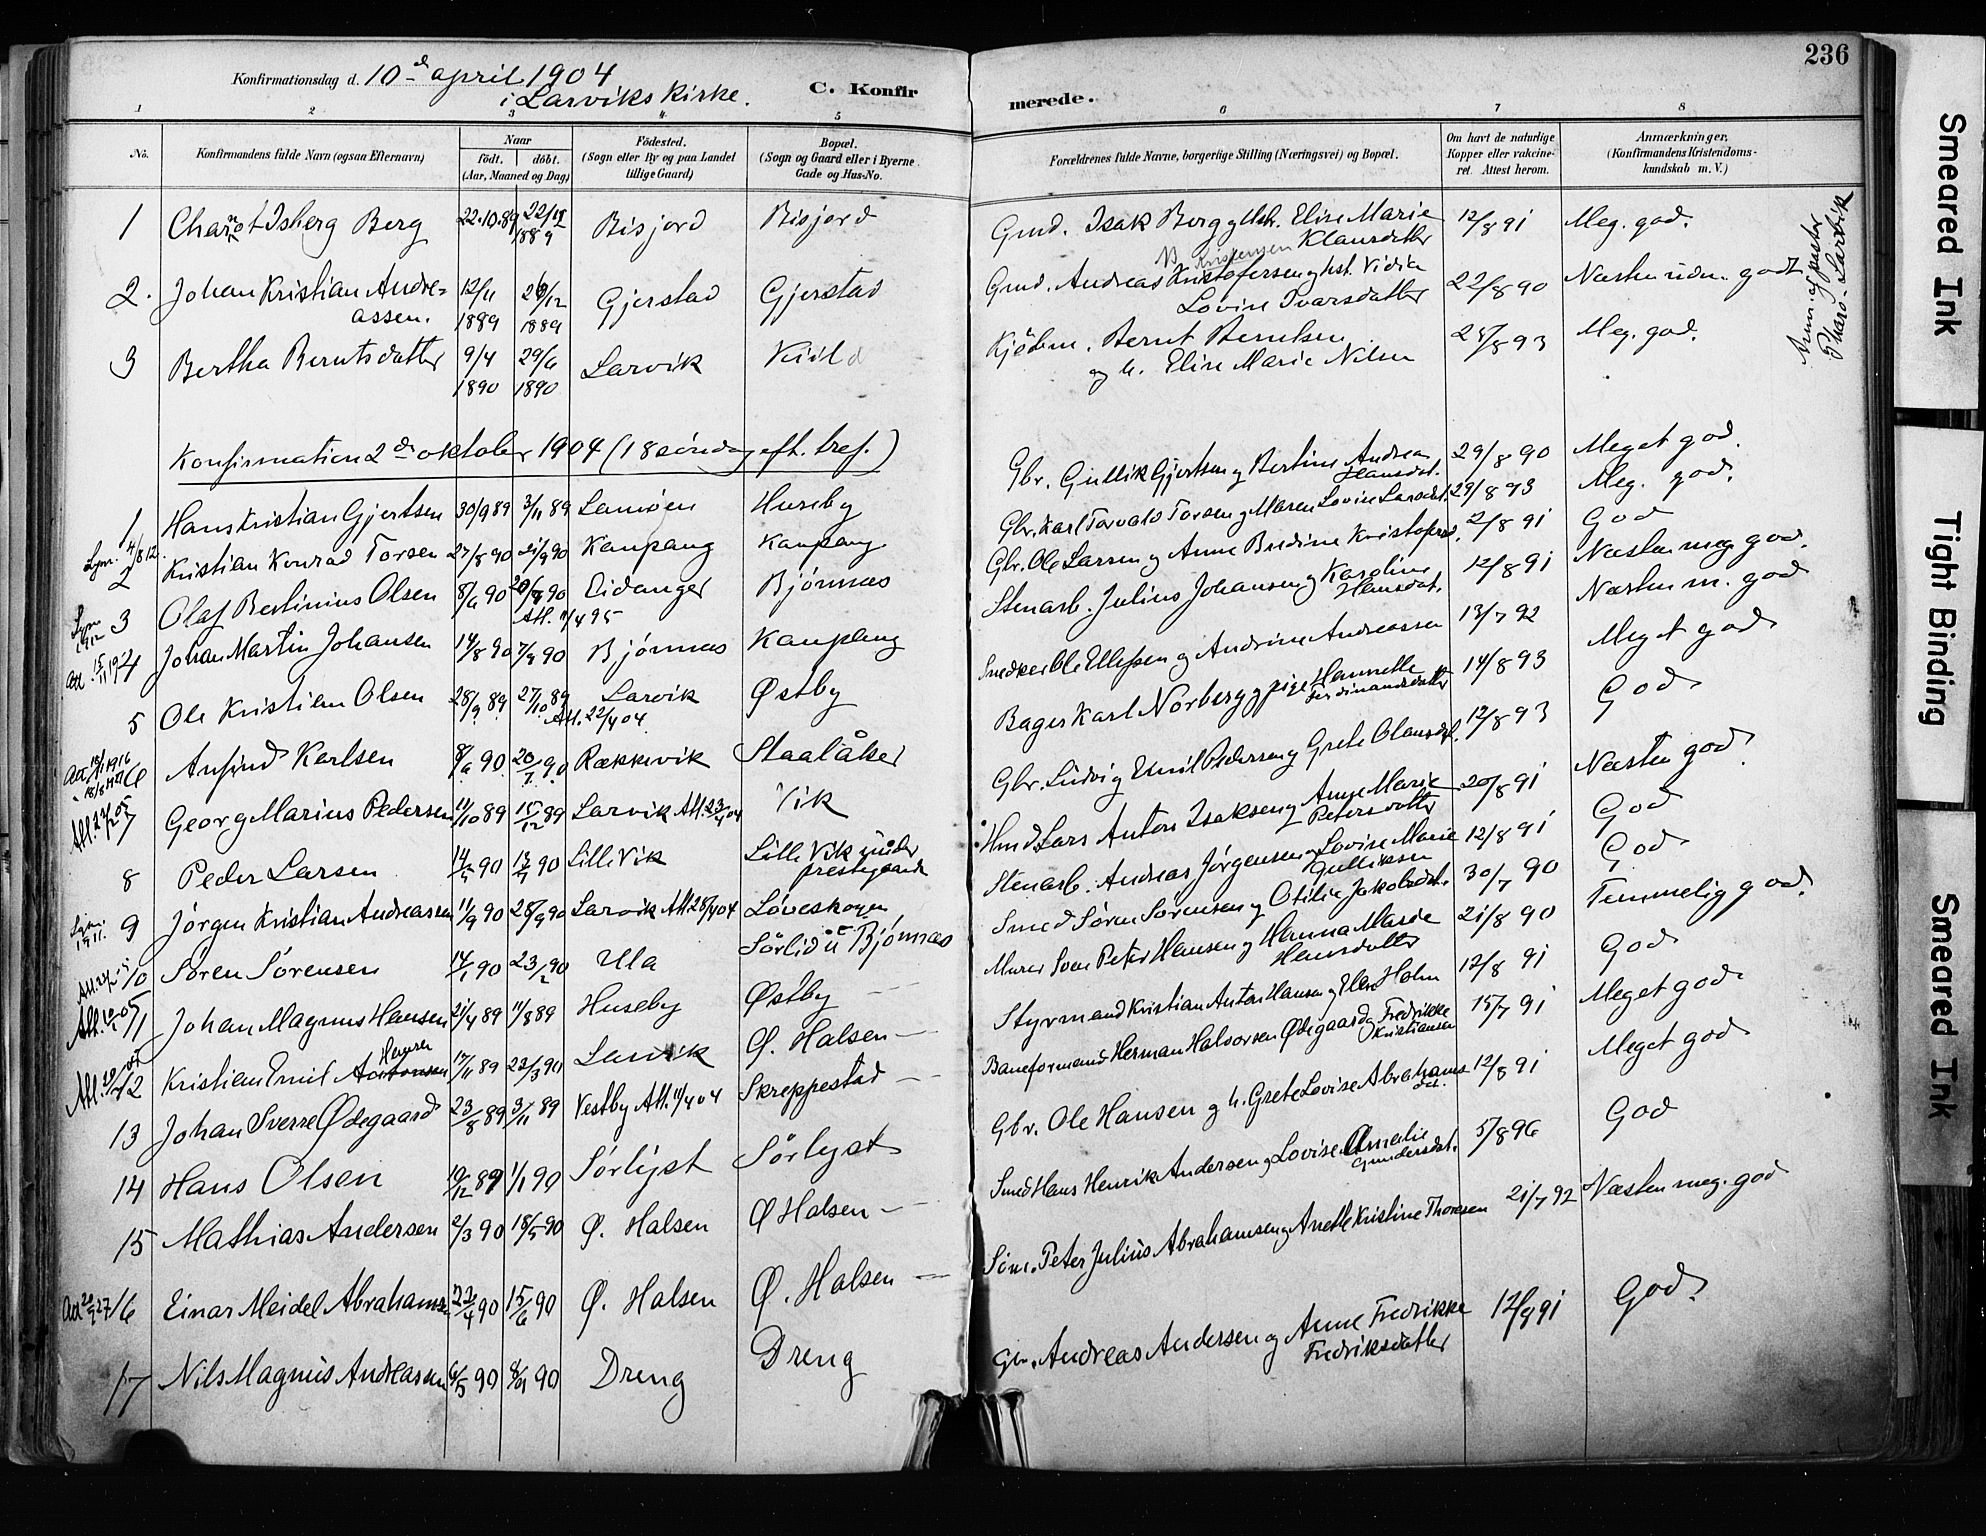 236
Konfirmationsdag d. 10de april 1904
i Larviks kirke.
C. Konfirmerede.
1 2 3 4 5 6 7 8
No.
Konfirmandens fulde Navn (ogsaa Efternavn)
Naar
født. døbt.
(Aar, Maaned og Dag)
Födested.
(Sogn eller By og paa Landet
tillige Gaard)
Bopæl.
(Sogn og Gaard eller i Byerne
Gade og Hus-No.
Forældrenes fulde Navne, borgerlige Stilling (Næringsvei) og Bopæl.
Om havt de naturlige
Kopper eller vakcine-
ret. Attest herom.
Anmærkninger.
(Konfirmandens Kristendoms-
kundskab m. V.)
1 Isberg Berg 22.10.89 22/11 1889 Bisjord Bisjord Gmd. Isak Berg og Hst. Elise Marie Klausdatter 12/8 91 Meg. god.
2. Johan Kristian Andreassen. 12/11 1889 26/12 1889 Gjerstad Gjerstad Gmd. Andreas Kristofersen og hst. Lovise Ivarsdatter 22/8 90 Næsten udm. godt
Kristensen
3 Bertha Berntsdatter 9/4 1890 29/6 1890 Larvik Kiil Kjöbm. Bernt Berntsen og h. Elise Marie 28/8 93 Meg. god.
Larvik
Konfirmation 2den oktober 1904 (18 söndag eft. tref.)
1 Hans Kristian Gjertsen 30/9 89 3/11 89 Lamöen Huseby Gbr. Gullik Gjertsen og Bertine Andrea Hansdat. 29/8 90 Meget god.
2 Kristian Konrad Torsen 27/8 90 21/9 90 Kaupang Kaupang Gbr. Karl Torvald Torsen og Maren Lovise Larsdat. 29/8 93 Meg. god.
3 Olaf Bertinius Olsen 8/6 90 20/7 90 Eidanger Bjönnes Gbr. Ole Larsen og Anne Bredine Kristofersd. 12/8 91 God
Att. 11/4 95
4 Johan Martin Johansen 14/8 90 7/9 90 Bjönnes Kaupang Stenarb. Julius Johansen og Karoline Hansdat. 12/8 91 Næsten meg. god.
5 Ole Kristian Olsen 28/9 89 27/10 89 Larvik Østby Ole Ellefsen og Andrine Andreassen 13/7 92 Næsten m. god
Att. 22/4 04
6 Anfind Karlsen 8/6 90 20/7 90 Rækkevik Staalåker Bager Karl Norberg og pige Hannette Ferdinandsdatter 14/8 93 Meget god
7 Georg Marius Pedersen 11/10 89 15/12 89 Larvik Att. 23/4 04 Vik Gbr. Ludvig Emil Pedersen og Grete Olausdt. 12/8 93 God
8 Peder Larsen 14/5 90 13/7 90 Lille Vik Lille Vik under prestegaard Hmd Lars Anton Isaksen og Anne Marie Petersdatter 20/8 91 Næsten god
9 Jörgen Kristian Andreassen 11/9 90 28/9 90 Larvik Att. 28/4 04 Löveskogen Stenarb. Andreas Jörgensen og Lovise Marie Gulliksen 12/8 91 God
10 Sören Sörensen 14/1 90 23/2 90 Ula Sörlid u. Bjönnes Smed Sören Sörensen og Otilie Jakobsdat. 30/7 90 God
11 Johan Magnus Hansen 21/4 89 11/8 89 Huseby Østby Murer Sven Peter Hansen og Hanna Marie Hansdatter 21/8 90 Temmelig god.
12 Kristian Emil Antonsen Hansen 17/11 89 23/3 90 Larvik Ø. Halsen Styrmand Kristian Anton Hansen og Ellen Holm 12/8 91 God
13 Johan Sverre Ødegaard 23/8 89 3/11 89 Vestby Att. 11/4 04 Skreppestad Baneformand Herman Halvorsen Ødegaard og Fredrikke Kristiansen 15/7 91 Meget god
14 Hans Olsen 10/12 89 1/1 90 Sörlyst Sörlyst Gbr. Ole Hansen og h. Grete Lovise Abrahamsdt. 12/8 91 Meget god
15 Mathias Andersen 2/3 90 18/5 90 Ø. Halsen Ø Halsen Smed Hans Henrik Andersen og Lovise Amalie Gundersdat. 5/8 96 God
16 Einar Meidel Abrahamsen 22/4 90 15/6 90 Ø. Halsen Ø. Halsen Söm. Peter Julius Abrahamsen og Anette Kristine Thoresen 21/7 92 Næsten meg. god
17 Nils Magnus Andreassen 6/5 90 8/9 90 Dreng Dreng Gbr. Andreas Andersen og Anne Fredrikke Fredriksdatter 12/9 91 God.
Smeared Ink
Tight Binding
Smeared Ink